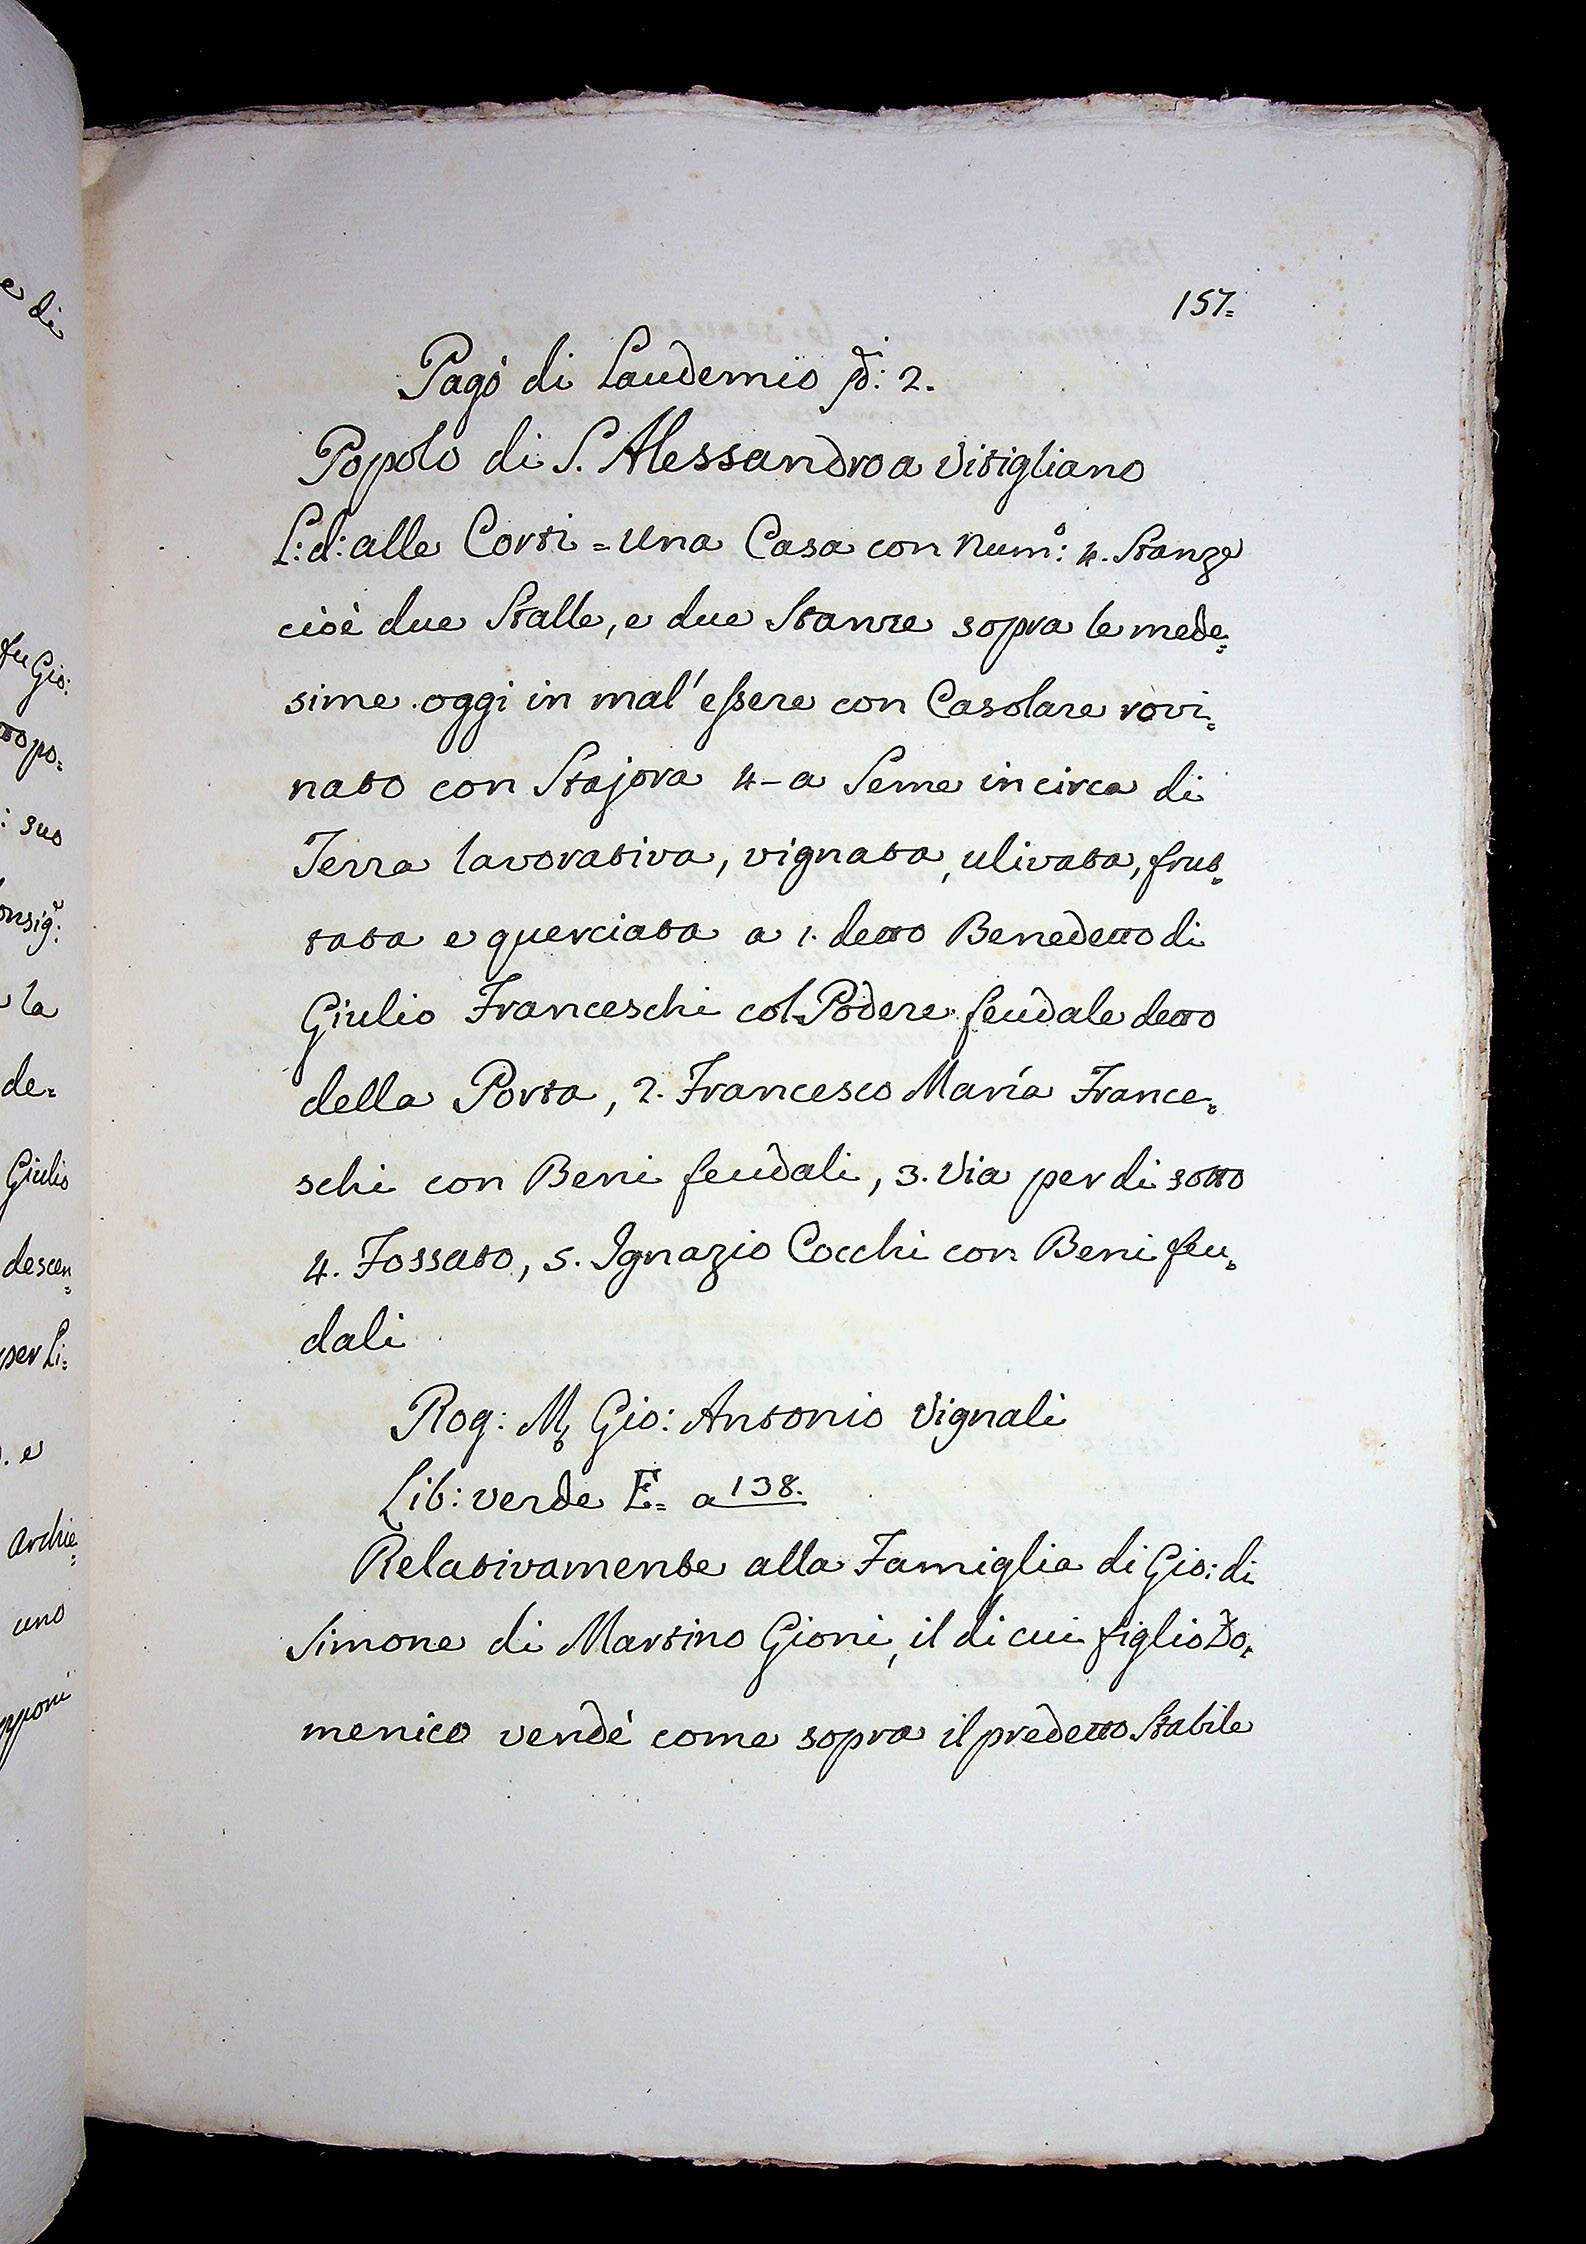 e di
fu Gio:
tto po=
: suo
onsig.e:
la
de=
Giulio
descen=
per Li=
. e
Archie=
uno
pponi
157=
Pagò di Laudemio : 2.
Popolo di S. Alessandro a Vitigliano
L: d: alle Corti = Una Casa con Num.o: 4. Stanze
cioè due Stalle, e due Stanze sopra le mede=
sime oggi in mal' essere con Casolare rovi=
nato con Stajora 4- a Seme in circa di
Terra lavorativa, vignata, ulivata, frut=
tata e querciata a 1. detto Benedetto di
Giulio Franceschi col Podere feudale detto
della Porta, 2. Francesco Maria France=
schi con Beni feudali, 3. Via per di sotto
4. Fossato, 5. Ignazio Cocchi con Beni feu=
dali
Rog: Mr. Gio: Antonio Vignali
Lib: verde E= a 138.
Relativamente alla Famiglia di Gio: di
Simone di Martino Gioni, il di cui figlio Do=
menico vendé come sopra il predetto Stabile